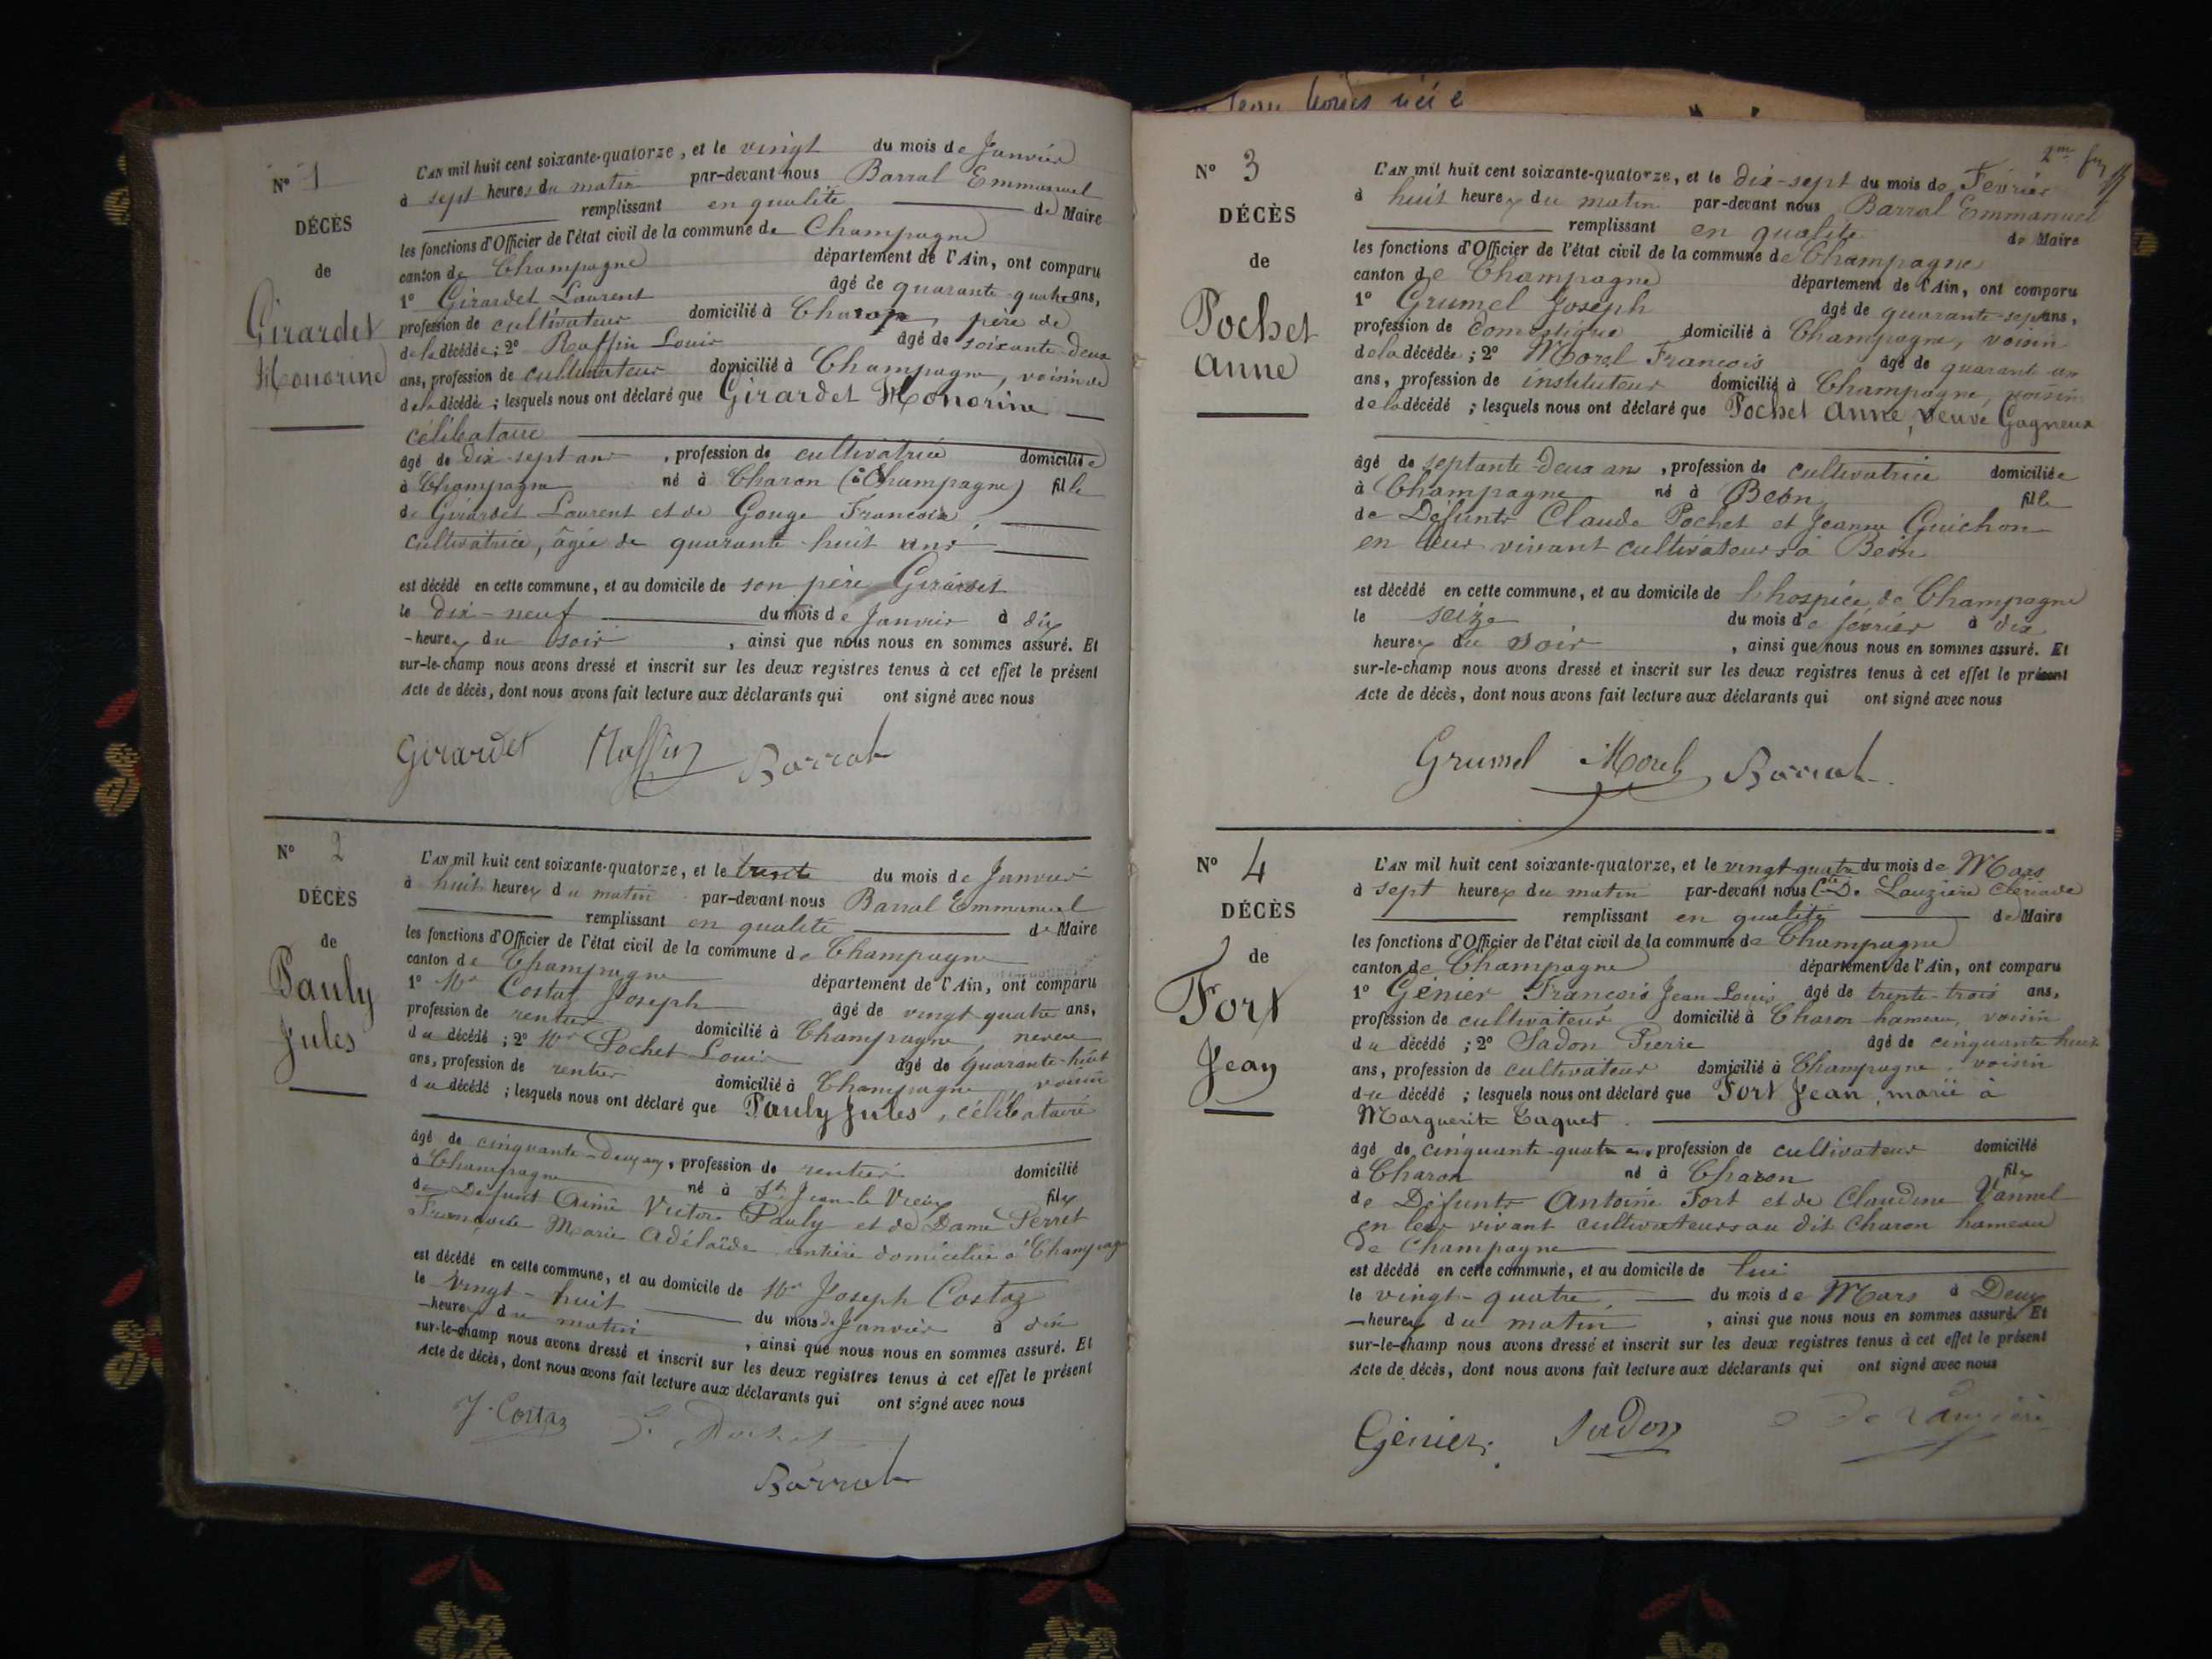 N° 1
DÉCÈS
de
Girardet
Honorine
L'AN mil huit cent soixante-quatorze, et le vingt du mois de Janvier
à sept heures du matin par-devant nous Barral Emmanuel
remplissant en qualité de Maire
les fonctions d'Officier de l'état civil de la commune de Champagne
canton de Champagne département de l'Ain, ont comparu
1° Girardet Laurent âgé de quarante-quatre ans,
profession de cultivateur domicilié à Charon, père de
de la décédée ; 2° Raffin Louis âgé de soixante-deux
ans, profession de cultivateur domicilié à Champagne, voisin de
de la décédée ; lesquels nous ont déclaré que Girardet Honorine
célibataire
âgé de dix-sept ans, profession de cultivatrice domiciliée
à Champagne né à Charon (Champagne) fille
de Girardet Laurent et de Gouge
cultivatrice, âgée de quarante-huit ans
est décédé en cette commune, et au domicile de son père Girardet
le dix-neuf du mois de Janvier à dix
heures du soir, ainsi que nous nous en sommes assuré. Et
sur-le-champ nous avons dressé et inscrit sur les deux registres tenus à cet effet le présent
Acte de décès, dont nous avons fait lecture aux déclarants qui ont signé avec nous
Girardet Raffin Barral
N° 2
DÉCÈS
de
Pauly
Jules
L'AN mil huit cent soixante-quatorze, et le trente du mois de Janvier
à huit heures du matin par-devant nous Barral Emmanuel
remplissant en qualité de Maire
les fonctions d'Officier de l'état civil de la commune de Champagne
canton de Champagne département de l'Ain, ont comparu
1° Mr Costaz Joseph âgé de vingt-quatre ans,
profession de rentier domicilié à Champagne, neveu
du décédé ; 2° Mr Pochet Louis âgé de quarante-huit
ans, profession de rentier domicilié à Champagne, voisin
du décédé ; lesquels nous ont déclaré que Pauly Jules, célibataire
âgé de cinquante-deux ans, profession de rentier domicilié
à Champagne né à St Jean-le-Vieux fils
de Défunt Aimé Victor Pauly et de Dame Perret
Françoise Marie Adélaïde rentière domiciliée à Champagne
est décédé en cette commune, et au domicile de Mr Joseph Costaz
le vingt-huit du mois de Janvier à
heures du matin, ainsi que nous nous en sommes assuré. Et
sur-le-champ nous avons dressé et inscrit sur les deux registres tenus à cet effet le présent
Acte de décès, dont nous avons fait lecture aux déclarants qui ont signé avec nous
J. Costaz L. Pochet
Barral
Jean Louis née
2me
N° 3
DÉCÈS
de
Pochet
Anne
L'AN mil huit cent soixante-quatorze, et le dix-sept du mois de Février
à huit heures du matin par-devant nous Barral Emmanuel
remplissant en qualité de Maire
les fonctions d'Officier de l'état civil de la commune de Champagne
canton de Champagne département de l'Ain, ont comparu
1° Grumel Joseph âgé de quarante-sept ans,
profession de domestique domicilié à Champagne, voisin
de la décédée ; 2° Morel François âgé de quarante-un
ans, profession de instituteur domicilié à Champagne, voisin
de la décédé ; lesquels nous ont déclaré que Pochet Anne, veuve Gagneux
âgé de septante-deux ans, profession de cultivatrice domiciliée
à Champagne né à Béon fille
de Défunts Claude Pochet et Jeanne Guichon
en leur vivant cultivateurs à Béon
est décédé en cette commune, et au domicile de l'hospice de Champagne
le seize du mois de février à dix
heures du soir, ainsi que nous nous en sommes assuré. Et
sur-le-champ nous avons dressé et inscrit sur les deux registres tenus à cet effet le présent
Acte de décès, dont nous avons fait lecture aux déclarants qui ont signé avec nous
Grumel Morel Barral
N° 4
DÉCÈS
de
Fort
Jean
L'AN mil huit cent soixante-quatorze, et le vingt-quatre du mois de Mars
à sept heures du matin par-devant nous Cte De Lauzière
remplissant en qualité de Maire
les fonctions d'Officier de l'état civil de la commune de Champagne
canton de Champagne département de l'Ain, ont comparu
1° Génier François Jean Louis âgé de trente-trois ans,
profession de cultivateur domicilié à Charon hameau, voisin
du décédé ; 2° Sadon Pierre âgé de cinquante-huit
ans, profession de cultivateur domicilié à Champagne, voisin
du décédé ; lesquels nous ont déclaré que Fort Jean, marié à
Marguerite Taquet
âgé de cinquante-quatre ans, profession de cultivateur domicilié
à Charon né à Charon fils
de Défunts Antoine Fort et de Claudine Vannel
en leur vivant cultivateurs au dit Charon hameau
de Champagne
est décédé en cette commune, et au domicile de lui
le vingt-quatre du mois de Mars à Deux
heures du matin, ainsi que nous nous en sommes assuré. Et
sur-le-champ nous avons dressé et inscrit sur les deux registres tenus à cet effet le présent
Acte de décès, dont nous avons fait lecture aux déclarants qui ont signé avec nous
Génier Sadon De Lauzière